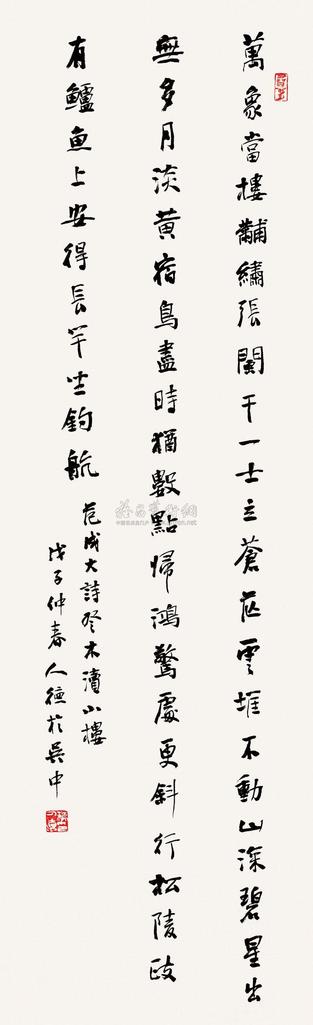 萬象當樓黼繡張闌干一士立蒼茫雲堆不動山深碧星出
無多月淡黃宿鳥盡時猶數點歸鴻驚處更斜行松陵政
有鱸魚上安得長竿坐釣航
范成大詩登木瀆小樓
戊子仲春人德於吳中